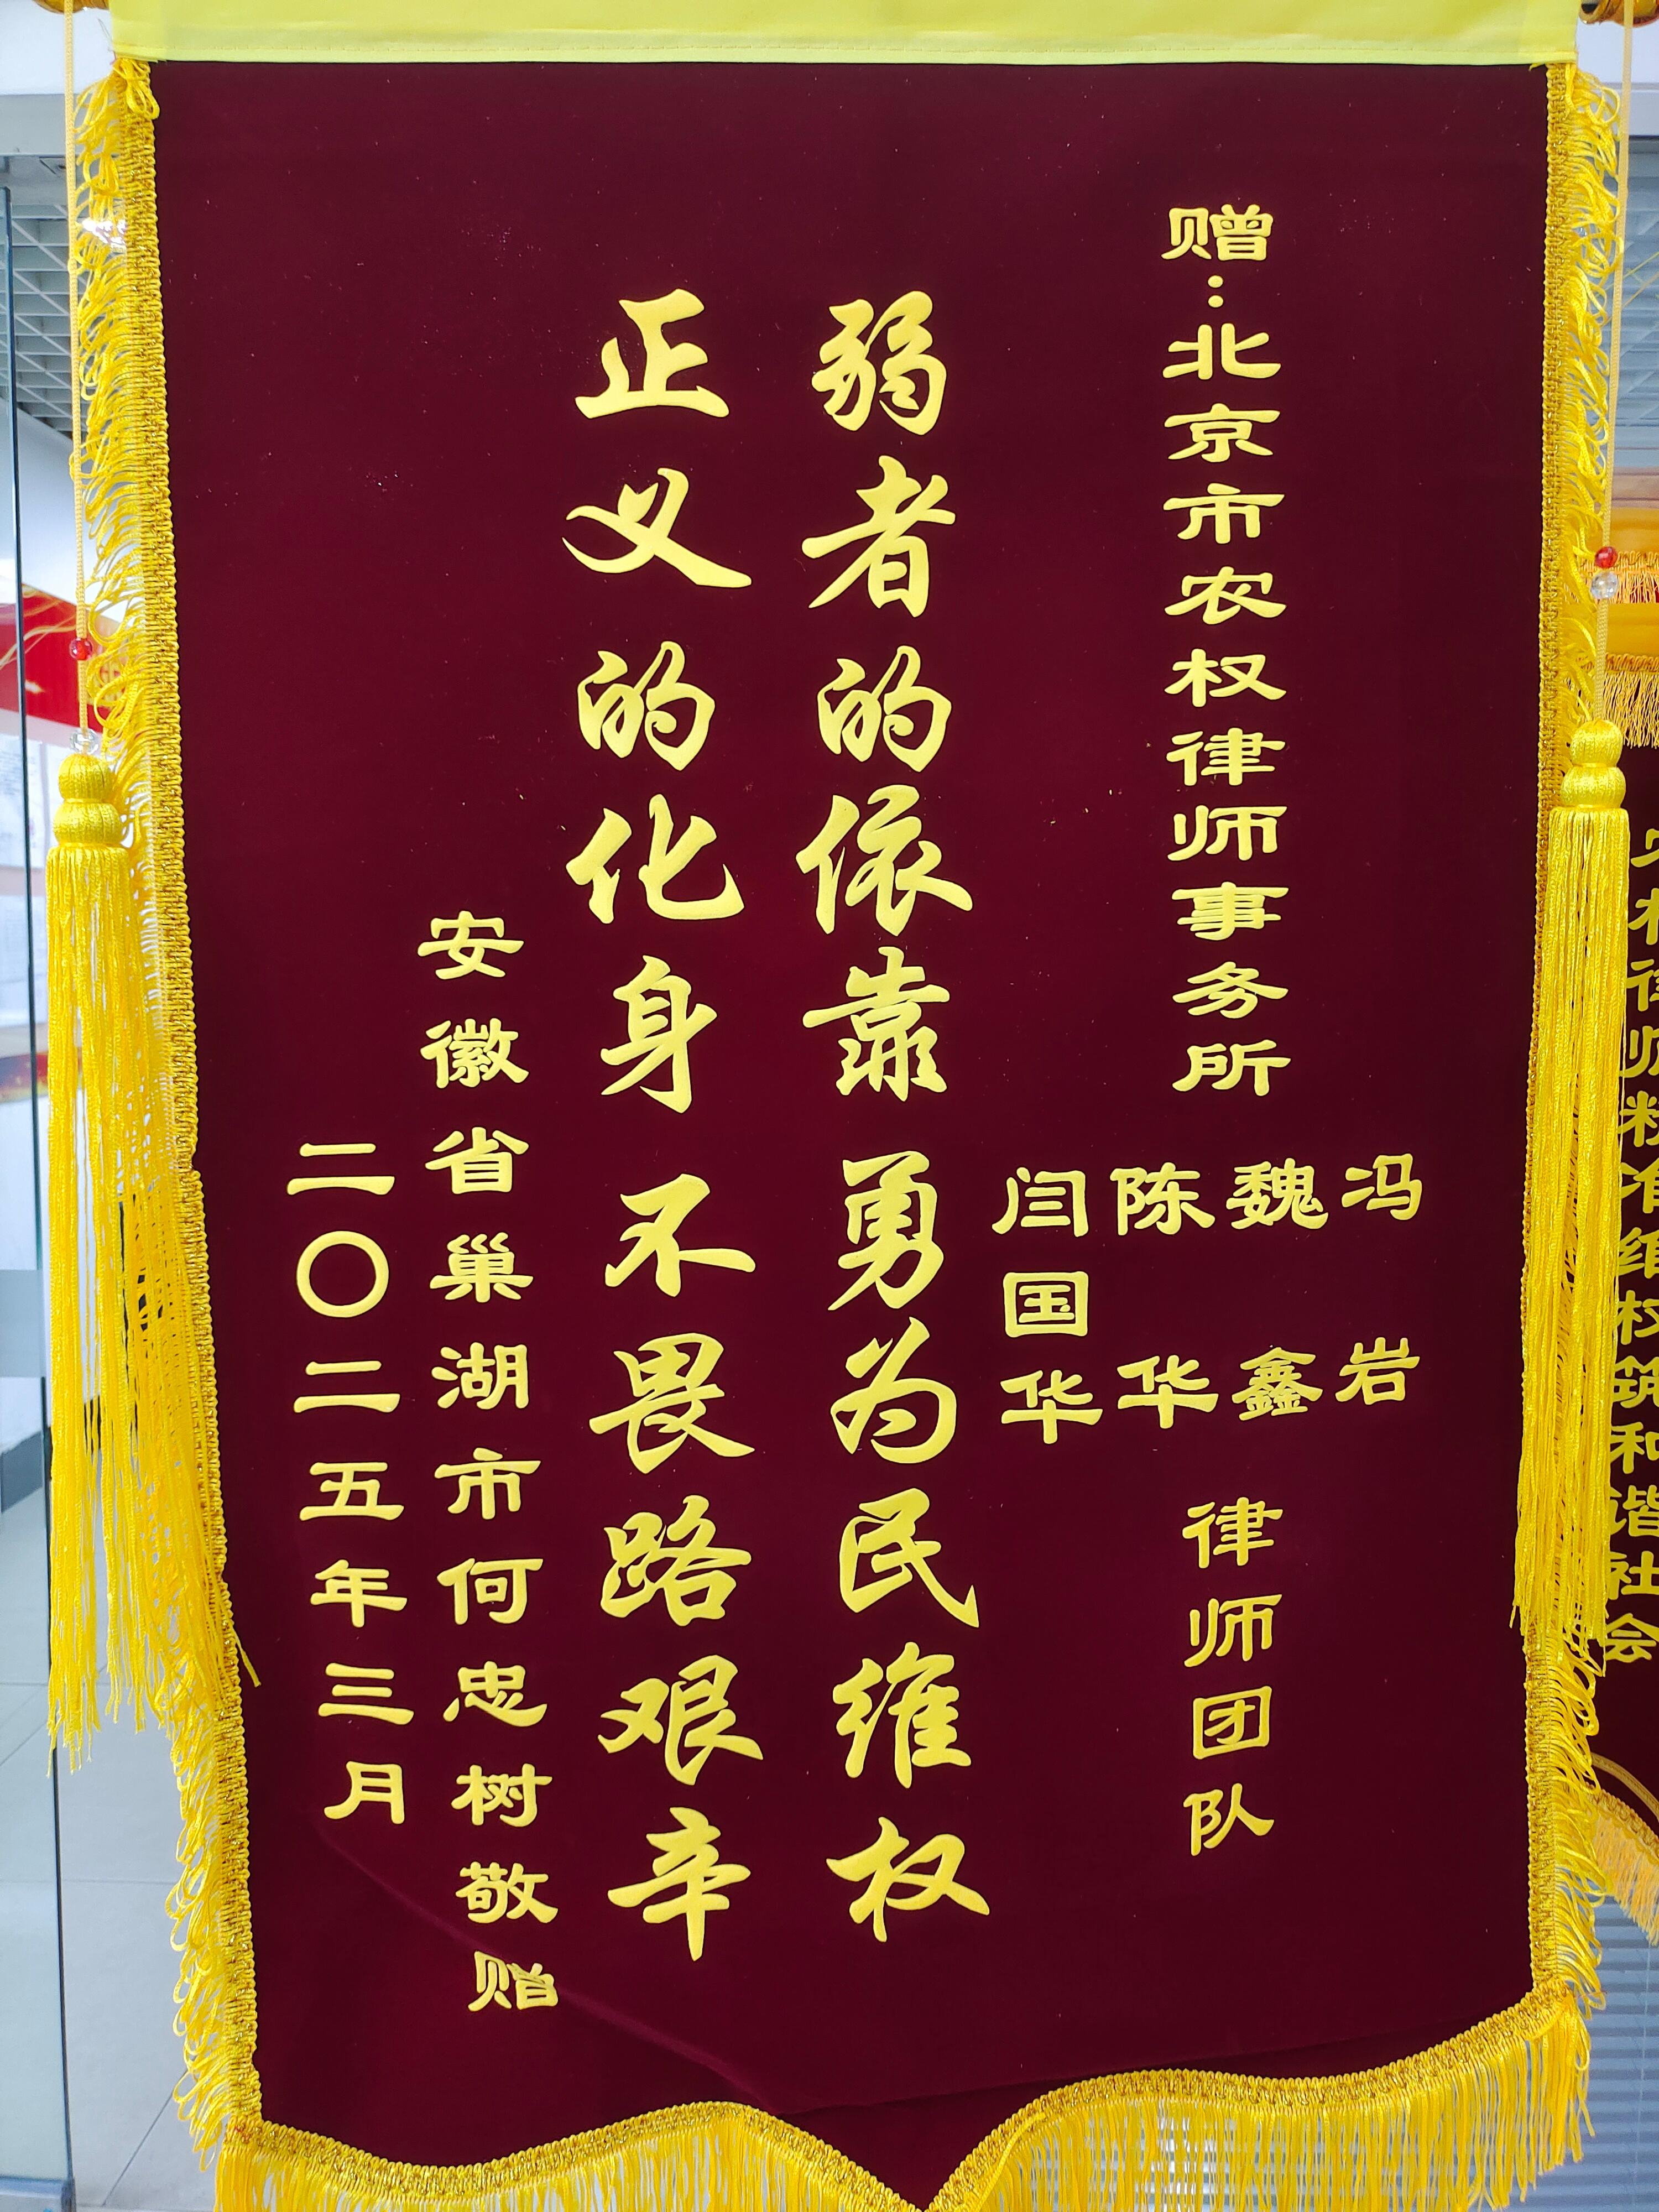 赠：北京市农权律师事务所
冯岩
魏鑫
陈华
闫国华
律师团队
弱者的依靠 勇为民维权
正义的化身 不畏路艰辛
安徽省巢湖市何忠树敬赠
二〇二五年三月
律师精准维权筑和谐社会